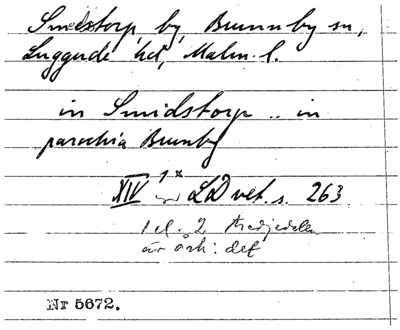 Smidstorp by, Brunnby sn,
Luggude hd, Malm. l.
in Smidstorp .. in
parochia Brunby
XIV 1 x LD vet. s. 263
1 el. 2 tredjedelen
är ork: def
Nr 5672.